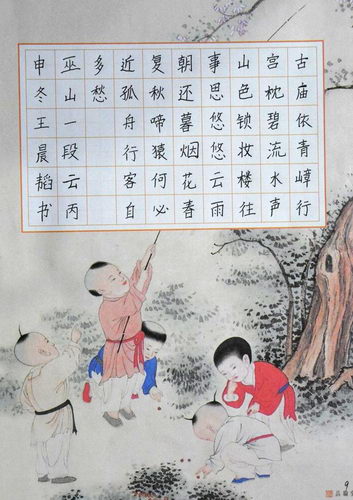 古庙依青嶂行
宫枕碧流水声
山色锁妆楼往
事思悠悠云雨
朝还暮烟花春
复秋啼猿何必
近孤舟行客自
多愁
巫山一段云丙
申冬王晨韬书
9